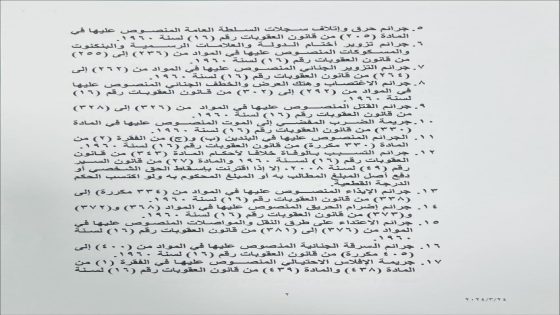 ٥. جرائم حرق وإتلاف سجلات السلطة العامة المنصوص عليها في
المادة (٢٠٥) من قانون العقوبات رقم (١٦) لسنة ١٩٦٠.
٦. جرائم تزوير أختام الدولة والعلامات الرسمية والبنكنوت
والمسكوكات المنصوص عليها في المواد من (٢٣٦) إلى
من قانون العقوبات رقم (١٦) لسنة ١٩٦٠.
٧. جرائم التزوير الجنائي المنصوص عليها في المواد من (٢٦٢) إلى
(٢٦٤) من قانون العقوبات رقم (١٦) لسنة ١٩٦٠.
٨. جرائم الاغتصاب وهتك العرض والخطف الجنائي المنصوص عليها
في المواد من (٢٩٧) إلى (٣٠٢) من قانون العقوبات رقم (١٦)
لسنة ١٩٦٠.
٩. جرائم القتل المنصوص عليها في المواد من (٣٢٦) إلى (٣٢٨)
من قانون العقوبات رقم (١٦) لسنة ١٩٦٠.
١٠. جريمة الضرب المفضي إلى الموت المنصوص عليها في المادة
(٣٣٠) من قانون العقوبات رقم (١٦) لسنة ١٩٦٠.
١١. الجرائم المنصوص عليها في البندين (ب) و(ج) من الفقرة (٢) من
المادة (٣٣٠ مكررة) من قانون العقوبات رقم (١٦) لسنة ١٩٦٠.
١٢. جرائم التسبب بالوفاة خلافاً لأحكام المادة (٣٤٣) من قانون
العقوبات رقم (١٦) لسنة ١٩٦٠ والمادة (٢٧) من قانون السير
رقم (٤٩) لسنة ٢٠٠٨، إلا إذا اقترنت بإسقاط الحق الشخصي أو
دفع أصل المبلغ المطالب به أو المبلغ المحكوم به ولو اكتسب الحكم
الدرجة القطعية.
١٣. جرائم الإيذاء المنصوص عليها في المواد من (٣٣٤ مكررة) إلى
(٣٣٨) من قانون العقوبات رقم (١٦) لسنة ١٩٦٠.
١٤. جرائم إضرام الحريق المنصوص عليها في المواد (٣٦٨) و(٣٧٢)
و(٣٧٣) من قانون العقوبات رقم (١٦) لسنة ١٩٦٠.
١٥. جرائم الاعتداء على طرق النقل والمواصلات المنصوص عليها في
المواد من (٣٧٦) إلى (٣٨١) من قانون العقوبات رقم (١٦) لسنة
١٩٦٠.
١٦. جرائم السرقة الجنائية المنصوص عليها في المواد من (٤٠٠) إلى
(٤٠٥ مكررة) من قانون العقوبات رقم (١٦) لسنة ١٩٦٠.
١٧. جريمة الإفلاس الاحتيالي المنصوص عليها في الفقرة (١) من
المادة (٤٣٨) والمادة (٤٣٩) من قانون العقوبات رقم (١٦) لسنة
٢
٢٠٢٤/٣/٢٤